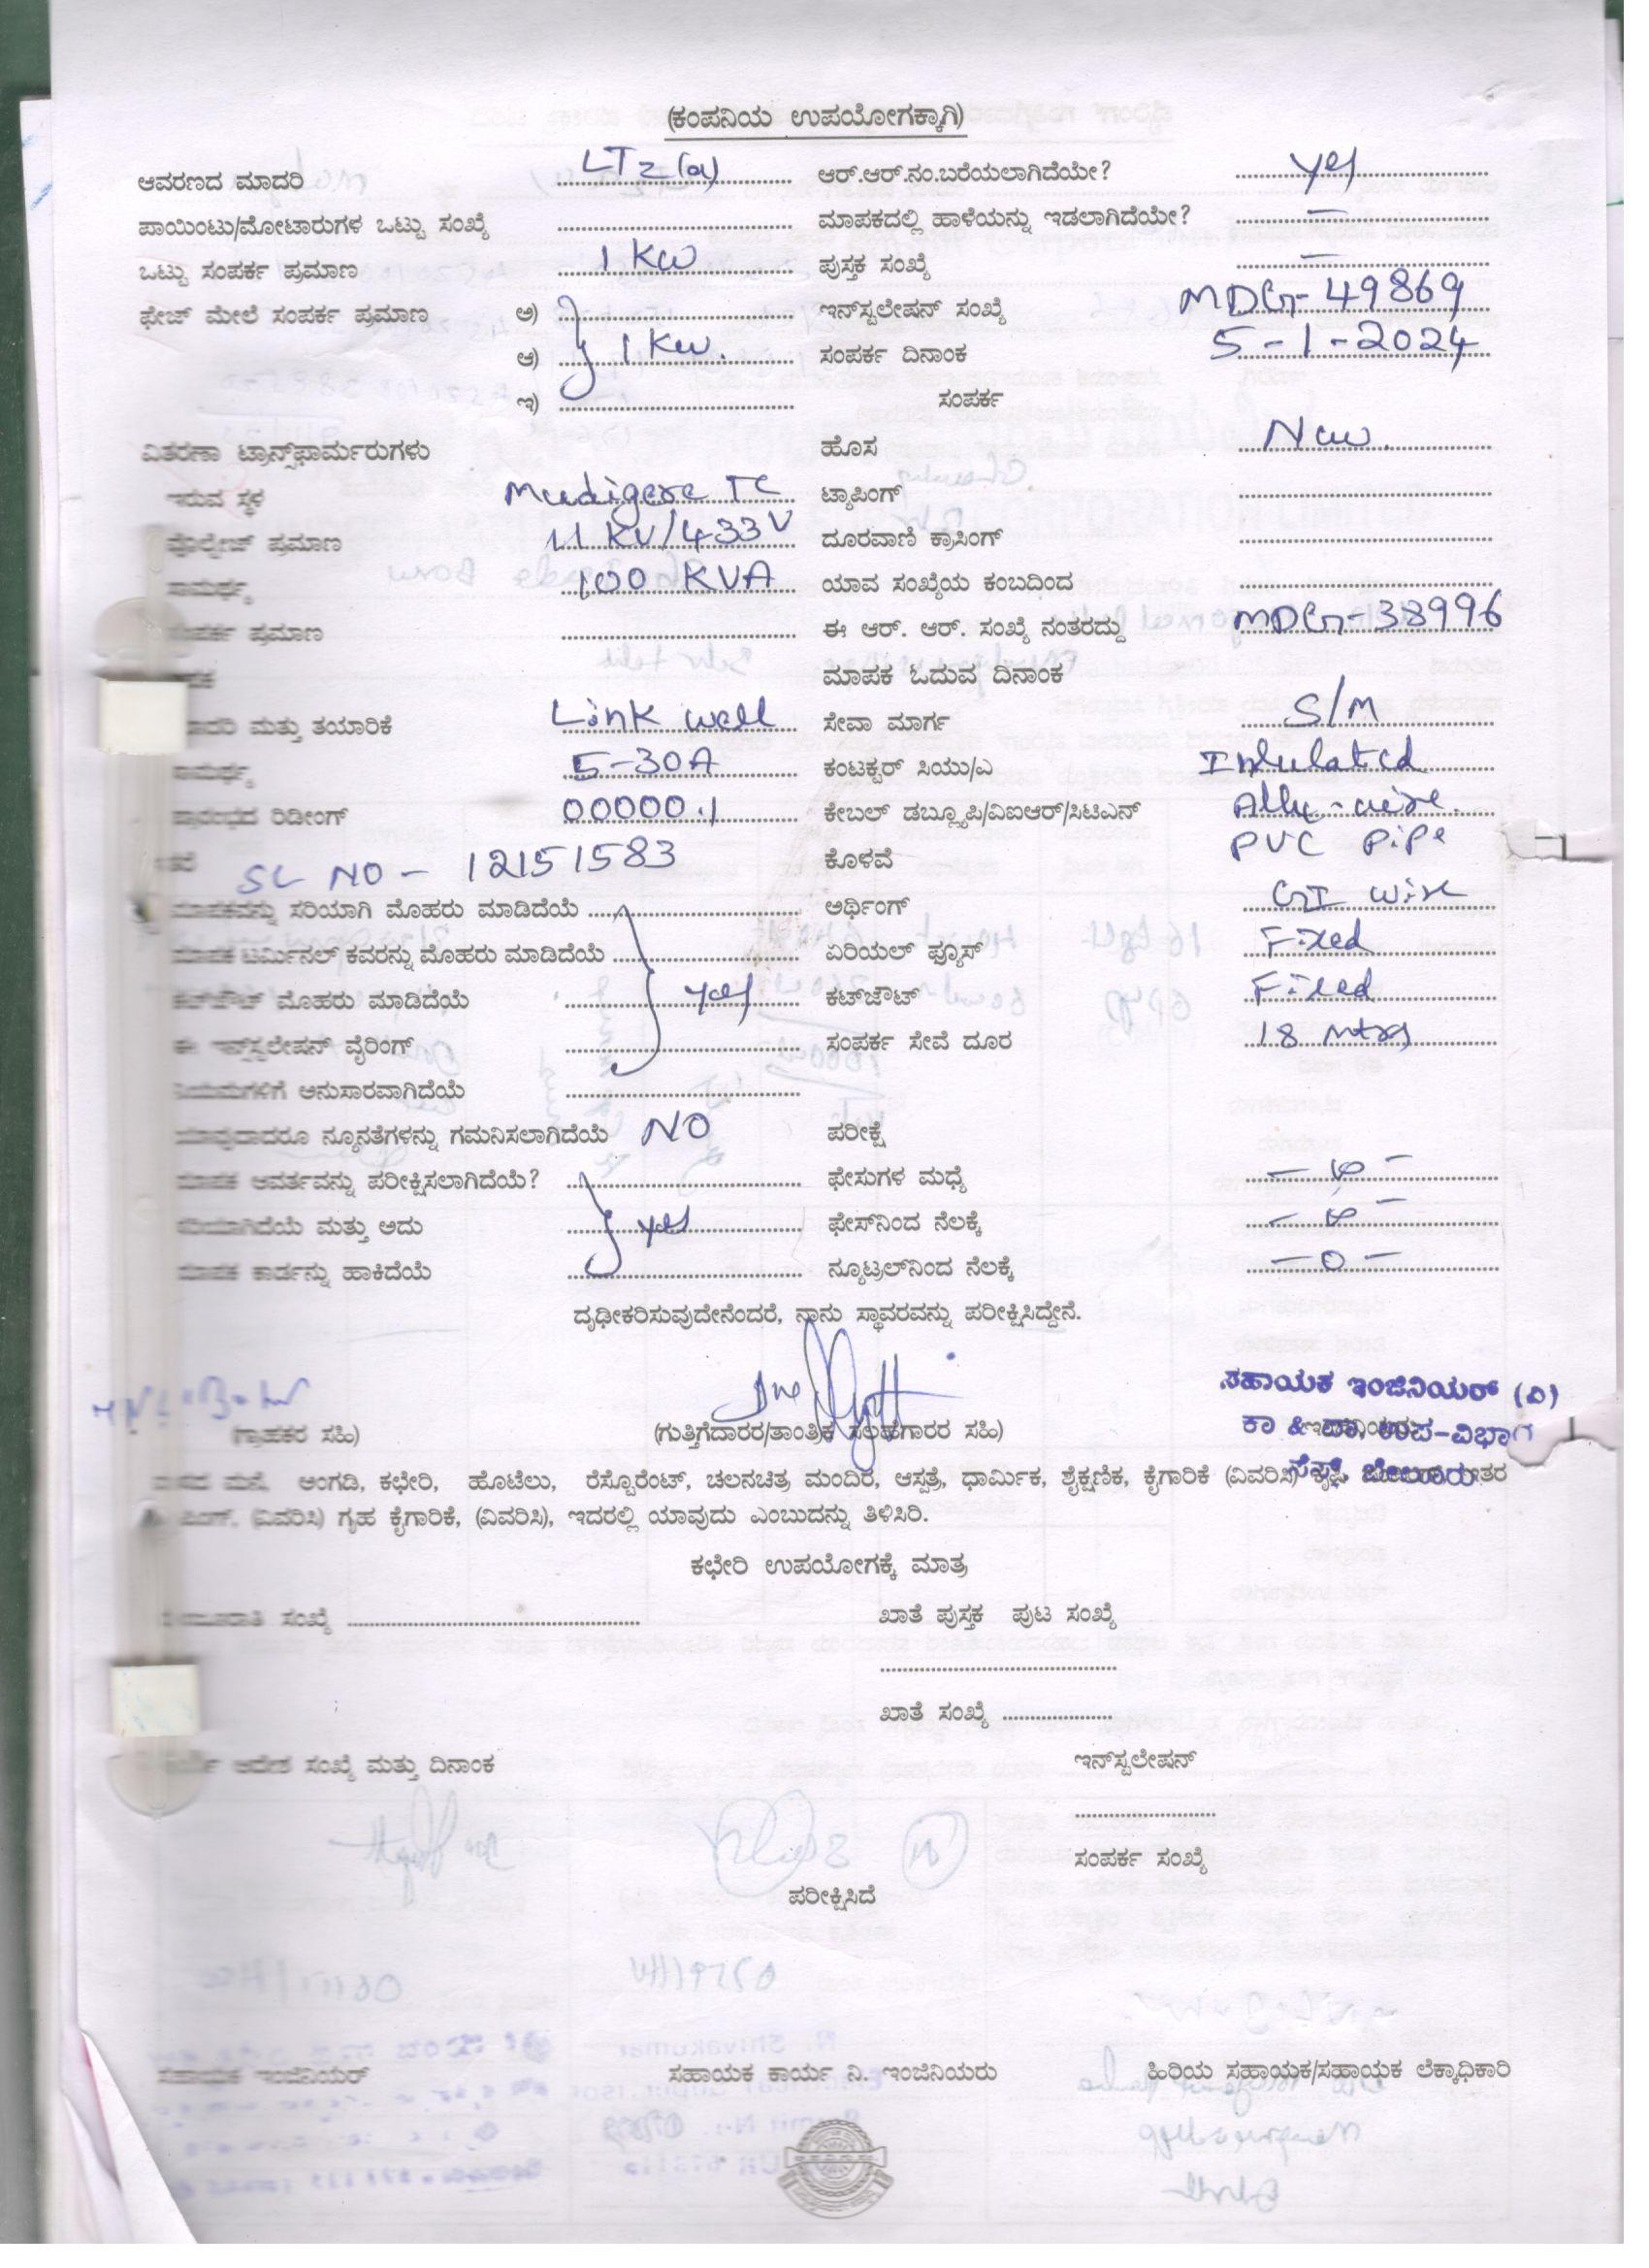 (ಕಂಪನಿಯ ಉಪಯೋಗಕ್ಕಾಗಿ)
ಆವರಣದ ಮಾದರಿ LT2(a) ಆರ್.ಆರ್.ನಂ.ಬರೆಯಲಾಗಿದೆಯೇ? yes
ಪಾಯಿಂಟು/ಮೋಟಾರುಗಳ ಒಟ್ಟು ಸಂಖ್ಯೆ ಮಾಪಕದಲ್ಲಿ ಹಾಳೆಯನ್ನು ಇಡಲಾಗಿದೆಯೇ? —
ಒಟ್ಟು ಸಂಪರ್ಕ ಪ್ರಮಾಣ 1 KW ಪುಸ್ತಕ ಸಂಖ್ಯೆ —
ಫೇಜ್ ಮೇಲೆ ಸಂಪರ್ಕ ಪ್ರಮಾಣ ಅ) ಇನ್‌ಸ್ಟಲೇಷನ್ ಸಂಖ್ಯೆ MDG-49869
ಆ) 1 KW. ಸಂಪರ್ಕ ದಿನಾಂಕ 5-1-2024
ಇ) ಸಂಪರ್ಕ
ವಿತರಣಾ ಟ್ರಾನ್ಸ್‌ಫಾರ್ಮರುಗಳು ಹೊಸ New.
ಇರುವ ಸ್ಥಳ Mudigere TC ಟ್ಯಾಪಿಂಗ್
ವೊಲ್ಟೇಜ್ ಪ್ರಮಾಣ 11 KV/433V ದೂರವಾಣಿ ಕ್ರಾಸಿಂಗ್
ಸಾಮರ್ಥ್ಯ 100 KVA ಯಾವ ಸಂಖ್ಯೆಯ ಕಂಬದಿಂದ
ಸಂಪರ್ಕ ಪ್ರಮಾಣ ಈ ಆರ್. ಆರ್. ಸಂಖ್ಯೆ ನಂತರದ್ದು MDG-38996
ಮಾಪಕ ಓದುವ ದಿನಾಂಕ
ಮತ್ತು ತಯಾರಿಕೆ Link well ಸೇವಾ ಮಾರ್ಗ S/M
ಸಾಮರ್ಥ್ಯ 5-30A ಕಂಟಕ್ಟರ್ ಸಿಯು/ಎ Insulated
ಪ್ರಾರಂಭದ ರಿಡೀಂಗ್ 00000.1 ಕೇಬಲ್ ಡಬ್ಲ್ಯೂಪಿ/ವಿಐಆರ್/ಸಿಟಿಎನ್ Allu-wire.
SL NO - 12151583 ಕೊಳವೆ PVC Pipe
ಮಾಪಕವನ್ನು ಸರಿಯಾಗಿ ಮೊಹರು ಮಾಡಿದೆಯೆ ಅರ್ಥಿಂಗ್ GI wire
ಮಾಪಕ ಟರ್ಮಿನಲ್ ಕವರನ್ನು ಮೊಹರು ಮಾಡಿದೆಯೆ ಏರಿಯಲ್ ಫ್ಯೂಸ್ Fixed
ಕಟ್‌ಔಟ್ ಮೊಹರು ಮಾಡಿದೆಯೆ yes ಕಟ್‌ಔಟ್ Fixed
ಈ ಇನ್‌ಸ್ಟಲೇಷನ್ ವೈರಿಂಗ್ ಸಂಪರ್ಕ ಸೇವೆ ದೂರ 18 mtrs
ನಿಯಮಗಳಿಗೆ ಅನುಸಾರವಾಗಿದೆಯೆ
ಯಾವುದಾದರೂ ನ್ಯೂನತೆಗಳನ್ನು ಗಮನಿಸಲಾಗಿದೆಯೆ NO ಪರೀಕ್ಷೆ
ಮಾಪಕ ಆವರ್ತವನ್ನು ಪರೀಕ್ಷಿಸಲಾಗಿದೆಯೆ? ಫೇಸುಗಳ ಮಧ್ಯೆ
ಸರಿಯಾಗಿದೆಯೆ ಮತ್ತು ಅದು yes ಫೇಸ್‌ನಿಂದ ನೆಲಕ್ಕೆ
ಮಾಪಕ ಕಾರ್ಡನ್ನು ಹಾಕಿದೆಯೆ ನ್ಯೂಟ್ರಲ್‌ನಿಂದ ನೆಲಕ್ಕೆ —0—
ದೃಢೀಕರಿಸುವುದೇನೆಂದರೆ, ನಾನು ಸ್ಥಾವರವನ್ನು ಪರೀಕ್ಷಿಸಿದ್ದೇನೆ.
ಸಹಾಯಕ ಇಂಜಿನಿಯರ್ (ವಿ)
(ಗ್ರಾಹಕರ ಸಹಿ) (ಗುತ್ತಿಗೆದಾರರ/ತಾಂತ್ರಿಕ ಸಲಹೆಗಾರರ ಸಹಿ) ಕಾ & ಪಾ, ಉಪ-ವಿಭಾಗ
ಮನೆ, ಅಂಗಡಿ, ಕಛೇರಿ, ಹೊಟೆಲು, ರೆಸ್ಟೊರೆಂಟ್, ಚಲನಚಿತ್ರ ಮಂದಿರ, ಆಸ್ಪತ್ರೆ, ಧಾರ್ಮಿಕ, ಶೈಕ್ಷಣಿಕ, ಕೈಗಾರಿಕೆ (ವಿವರಿಸಿ)
(ವಿವರಿಸಿ) ಗೃಹ ಕೈಗಾರಿಕೆ, (ವಿವರಿಸಿ), ಇದರಲ್ಲಿ ಯಾವುದು ಎಂಬುದನ್ನು ತಿಳಿಸಿರಿ.
ಕಛೇರಿ ಉಪಯೋಗಕ್ಕೆ ಮಾತ್ರ
ಸಂಖ್ಯೆ ಖಾತೆ ಪುಸ್ತಕ ಪುಟ ಸಂಖ್ಯೆ
ಖಾತೆ ಸಂಖ್ಯೆ
ಆದೇಶ ಸಂಖ್ಯೆ ಮತ್ತು ದಿನಾಂಕ ಇನ್‌ಸ್ಟಲೇಷನ್
ಸಂಪರ್ಕ ಸಂಖ್ಯೆ
ಪರೀಕ್ಷಿಸಿದೆ
ಸಹಾಯಕ ಇಂಜಿನಿಯರ್ ಸಹಾಯಕ ಕಾರ್ಯ ನಿ. ಇಂಜಿನಿಯರು ಹಿರಿಯ ಸಹಾಯಕ/ಸಹಾಯಕ ಲೆಕ್ಕಾಧಿಕಾರಿ